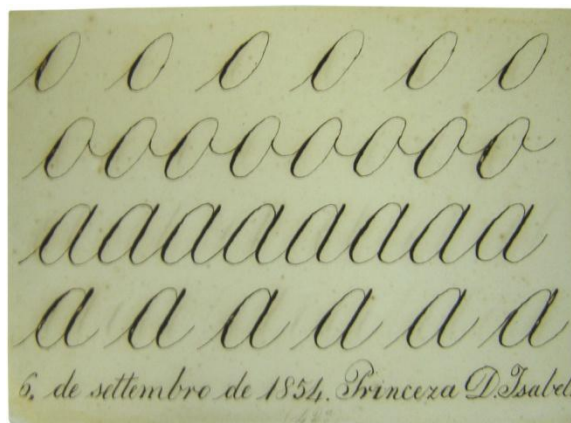 o o o o o o
oooooooo
aaaaaaaa
a a a a a a
6. de settembro de 1854. Princeza D. Isabel.